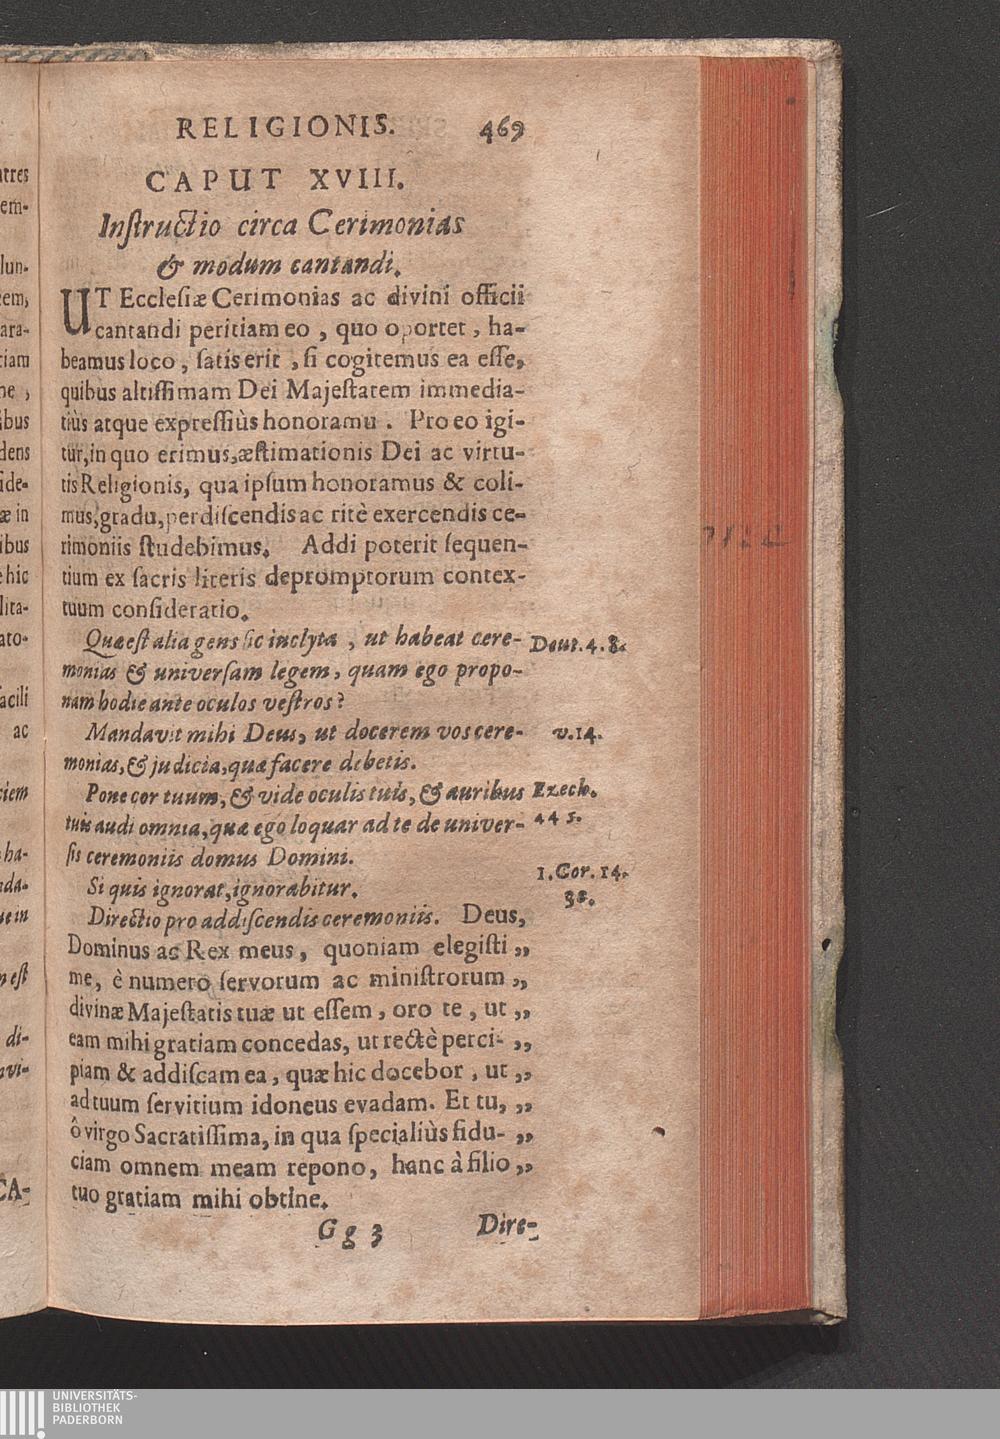 RELIGIONIS. 469
CAPUT XVIII.
Inſtructio circa Cerimonias
& modum cantandi.
UT Eccleſiæ Cerimonias ac divini officii
cantandi peritiam eo, quo oportet, ha-
beamus loco, ſatis erit, ſi cogitemus ea eſſe,
quibus altiſſimam Dei Majeſtatem immedia-
tiùs atque expreſſiùs honoramu . Pro eo igi-
tur, in quo erimus, æſtimationis Dei ac virtu-
tis Religionis, qua ipſum honoramus & coli-
mus, gradu, perdiſcendis ac ritè exercendis ce-
rimoniis ſtudebimus. Addi poterit ſequen-
tium ex ſacris literis depromptorum contex-
tuum conſideratio.
Quæ eſt alia gens ſic inclyta, ut habeat cere- Deut. 4. 8.
monias & univerſam legem, quam ego propo-
nam hodie ante oculos veſtros?
Mandavit mihi Deus, ut docerem vos cere- v. 14.
monias, & judicia, quæ facere debetis.
Pone cor tuum, & vide oculis tuis, & auribus Ezech.
tuis audi omnia, quæ ego loquar ad te de univer- 44 5.
ſis ceremoniis domus Domini.
Si quis ignorat, ignorabitur. 1. Cor. 14.
38.
Directio pro addiſcendis ceremoniis. Deus,
Dominus ac Rex meus, quoniam elegiſti „
me, è numero ſervorum ac miniſtrorum „
divinæ Majeſtatis tuæ ut eſſem, oro te, ut „
eam mihi gratiam concedas, ut rectè perci- „
piam & addiſcam ea, quæ hic docebor, ut „
ad tuum ſervitium idoneus evadam. Et tu, „
ô virgo Sacratiſſima, in qua ſpecialiùs fidu- „
ciam omnem meam repono, hanc à filio „
tuo gratiam mihi obtine.
Gg 3 Dire-
UNIVERSITÄTS-
BIBLIOTHEK
PADERBORN